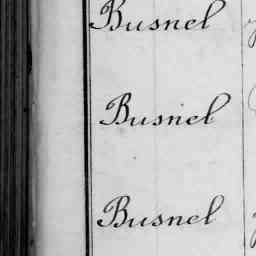 Busnel
Busnel
Busnel